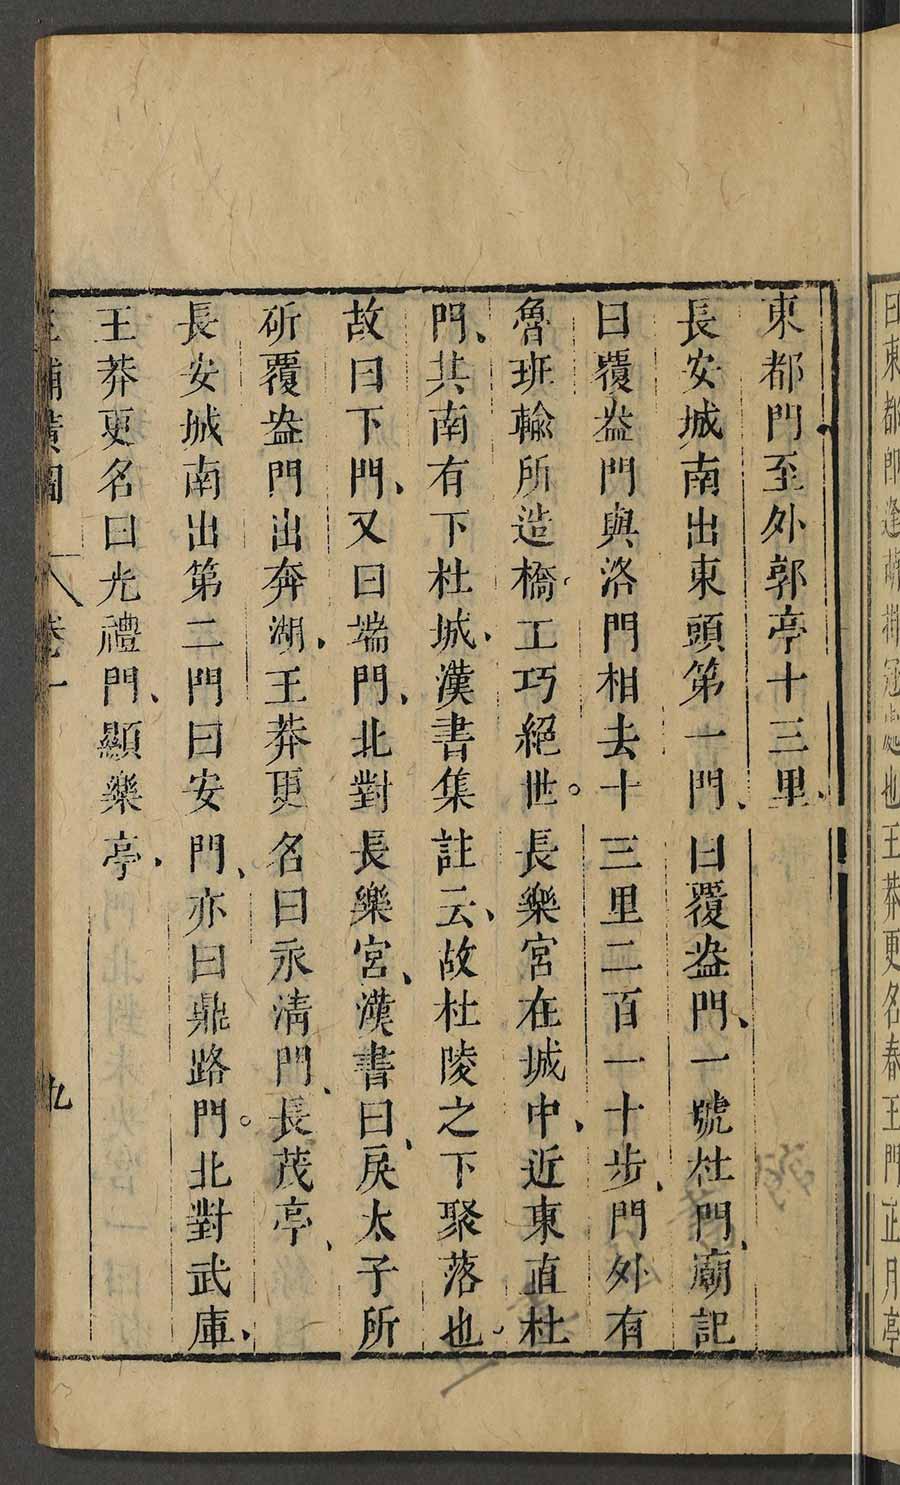 曰東都郎逢萌掛冠處也王莽更名春王門正月亭
東都門至外郭亭十三里、
長安城南出東頭第一門、曰覆盎門、一號杜門、廟記
曰覆盎門與洛門相去十三里二百一十步、門外有
魯班輸所造橋工巧絕世。長樂宮在城中、近東直杜
門、其南有下杜城、漢書集註云、故杜陵之下聚落也、
故曰下門、又曰端門、北對長樂宮、漢書曰、戾太子所
斫覆盎門出奔湖、王莽更名曰永清門、長茂亭、
長安城南出第二門曰安門、亦曰鼎路門。北對武庫、
王莽更名曰光禮門、顯樂亭、
三輔黃圖 卷一 九